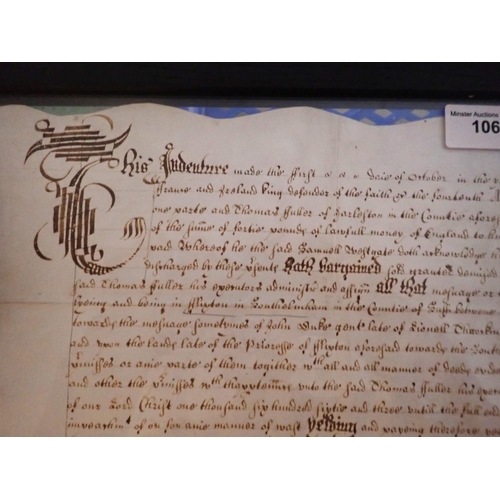 Minster Auctions
106
This Indenture made the first daie of October in the
ffrance and Ireland King defendor of the faith &c the fourteenth
one parte and Thomas ffuller of Harleston in the Countie aforesd
of the summe of fortie pounds of lawfull money of England to
paid Whereof he the said Samuell Westgate doth acknowledge
discharged by these psents Hath bargained sold graunted
said Thomas ffuller his executors administr and assigns all that mesuage or
lyeing and being in fflixton in Southelmham in the Countie of Suff betweene
towards the mesuage sometymes of John Duke gent late of Lionell
and upon the lands late of the Prioresse of fflixton aforesaid towards the
pmisses or anie parte of them togither wth all and all manner of deeds
and other the pmisses wth thappurtennces unto the said Thomas ffuller his
of our Lord Christ one thousand six hundred sixtie and three untill the full end
impeachmt of or for anie manner of wast Yelding and payeing therefore